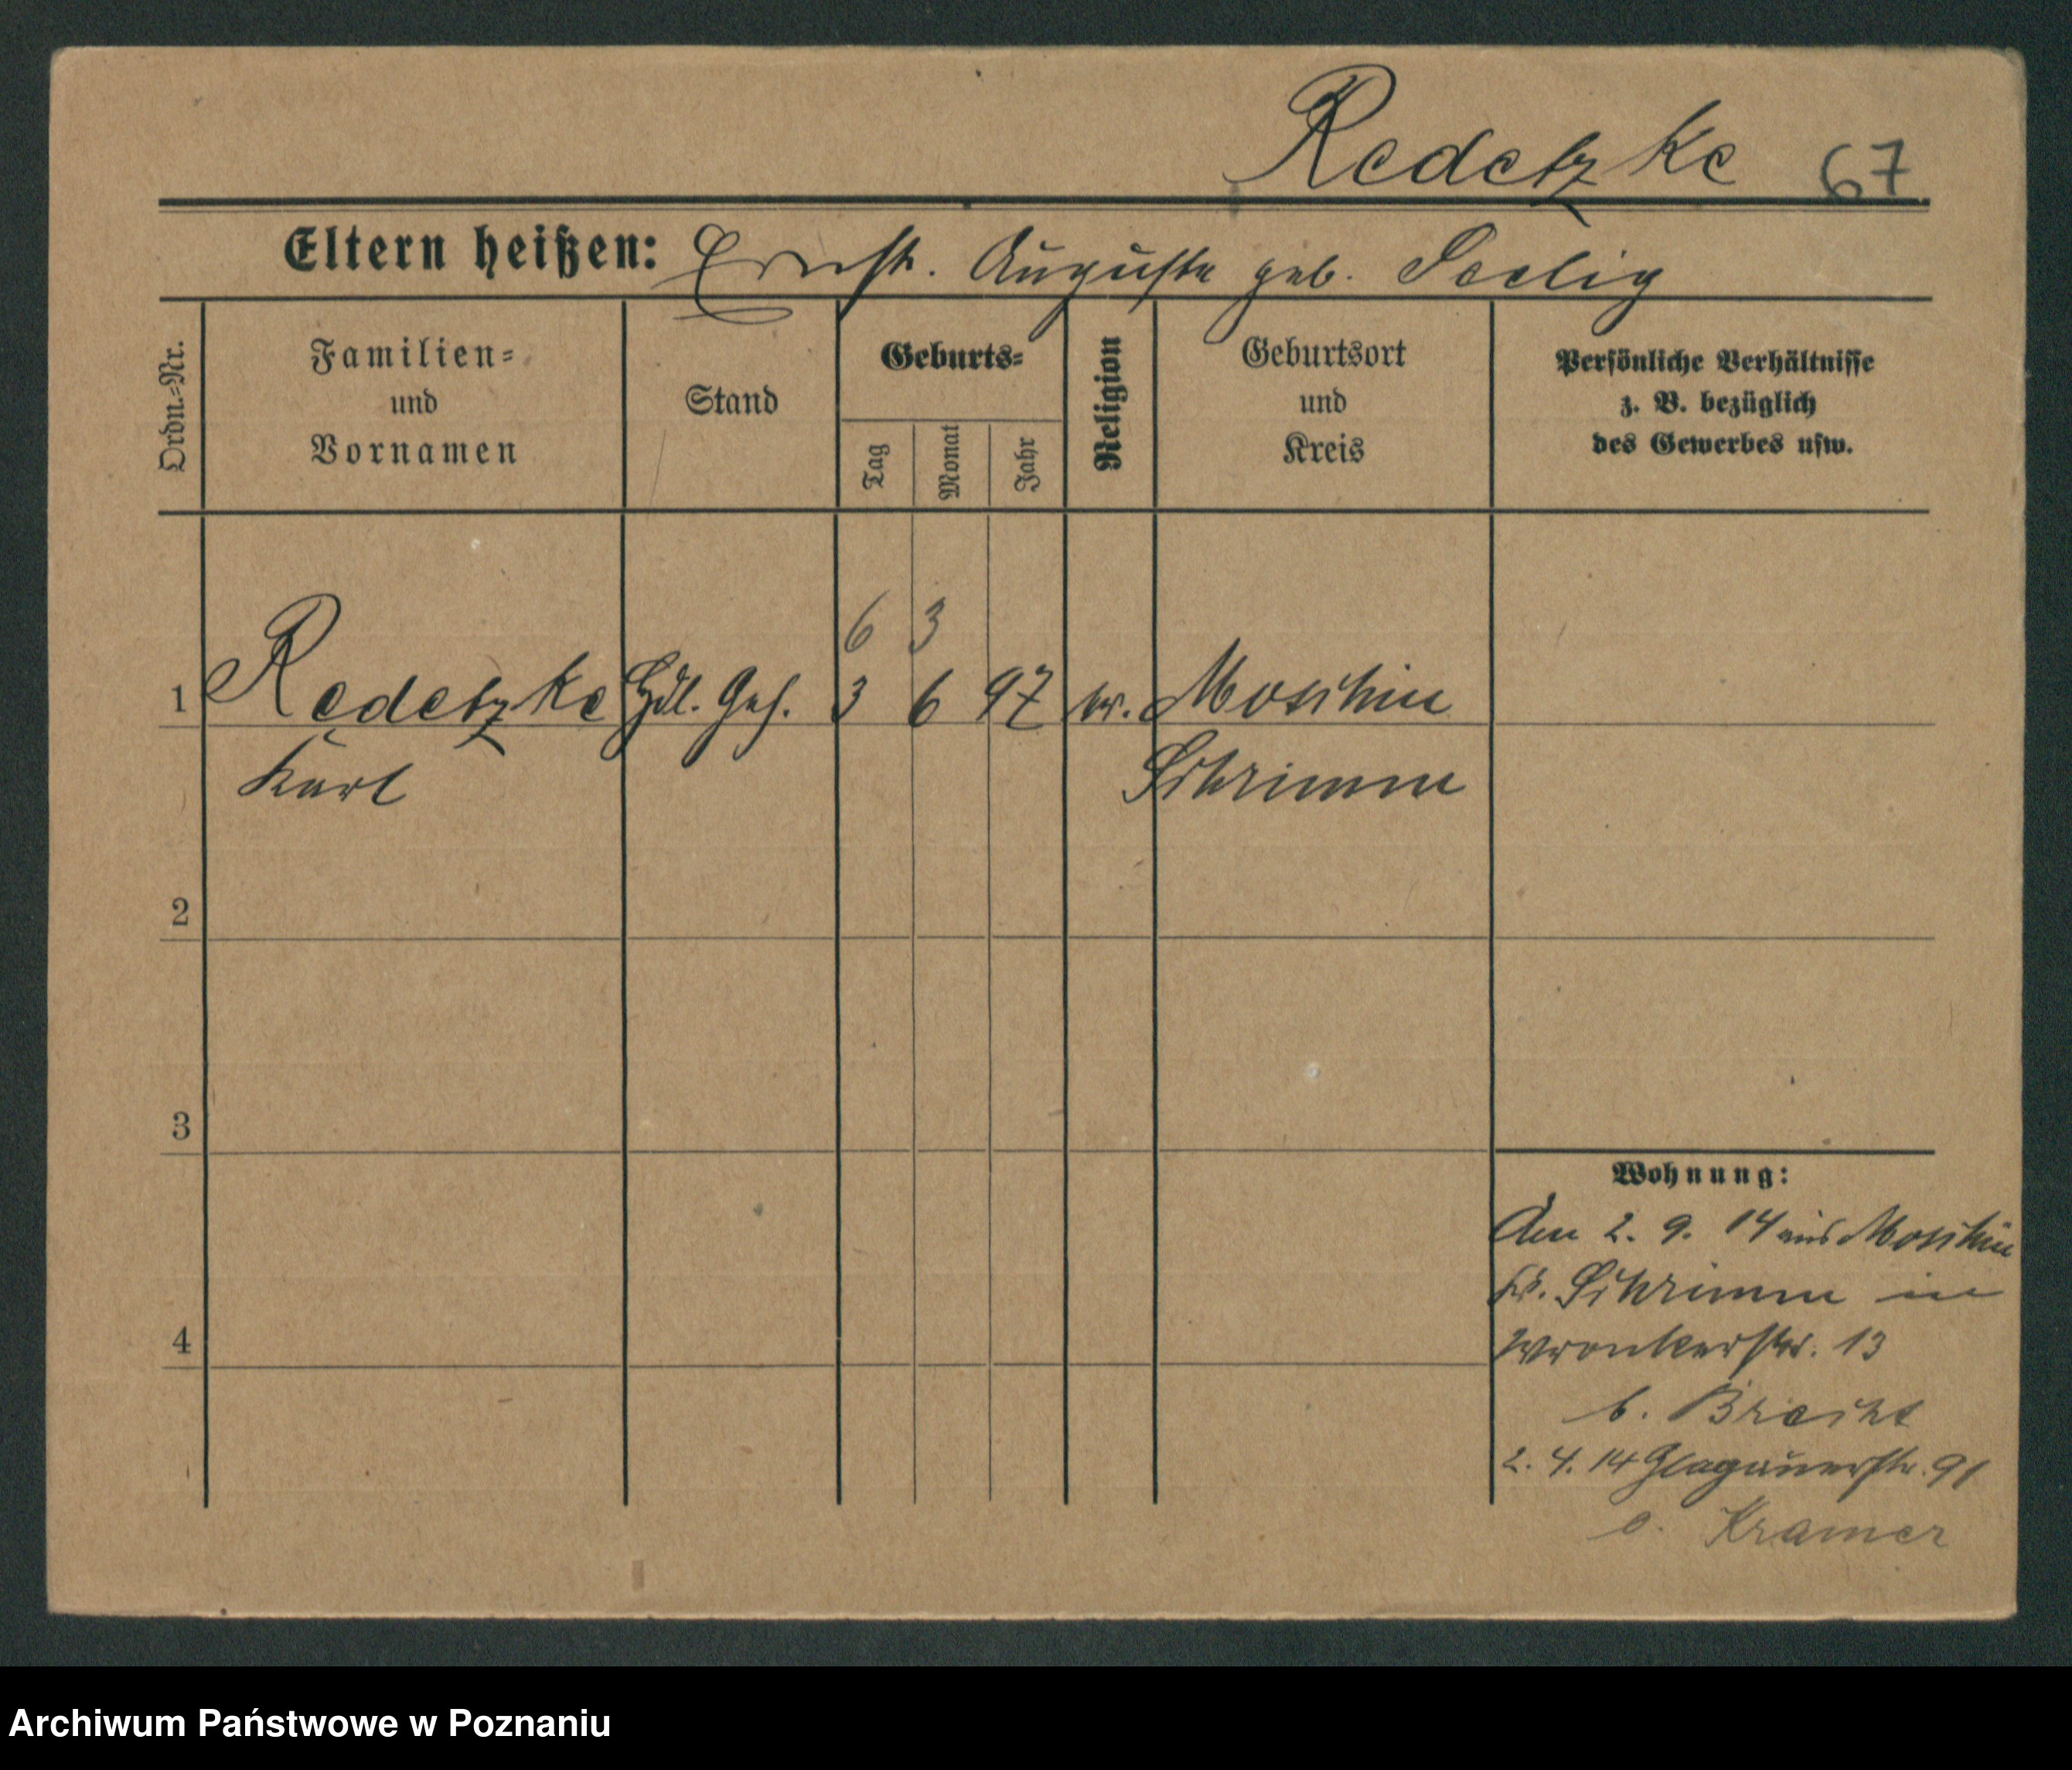 Redetzke 67
Eltern heißen: Ernst. Auguste geb. Seelig
Ordn.-Nr.
Familien-
und
Vornamen
Stand
Geburts-
Tag
Monat
Jahr
Religion
Geburtsort
und
Kreis
Persönliche Verhältnisse
z. B. bezüglich
des Gewerbes usw.
6 3
1 Redetzke Hdl. Geh. 3 6 97 ev. Moschin
Kurt Schrimm
2
3
Wohnung:
Am 2. 9. 14 aus Moschin
Kr. Schrimm in
4 Wronkerstr. 13
b. Brecht
2. 4. 14 Glogauerstr. 91
Kramer
Archiwum Państwowe w Poznaniu